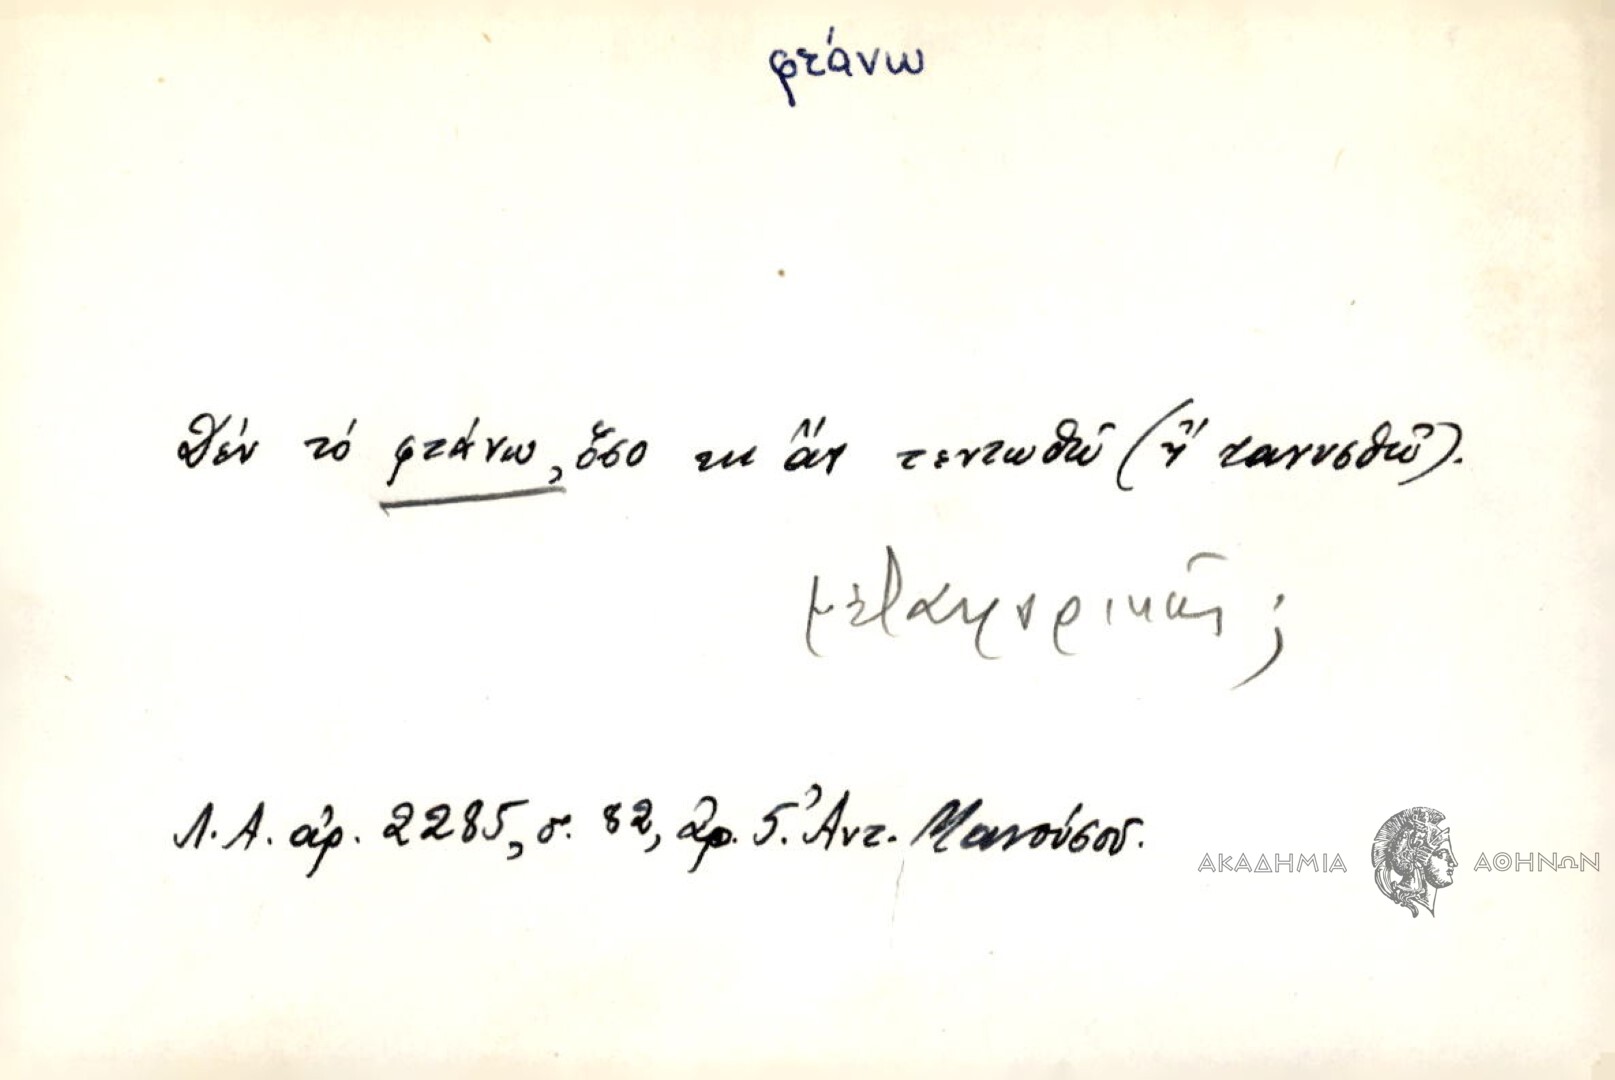 φτάνω
Δέν τό φτάνω, ὅσο κι ἄν τεντωθῶ (ἤ τανυσθῶ).
μεταφορικῶς;
Λ.Α. ἀρ. 2285, σ. 82, ἀρ. 5. Ἀντ. Μανούσου.
ΑΚΑΔΗΜΙΑ ΑΘΗΝΩΝ